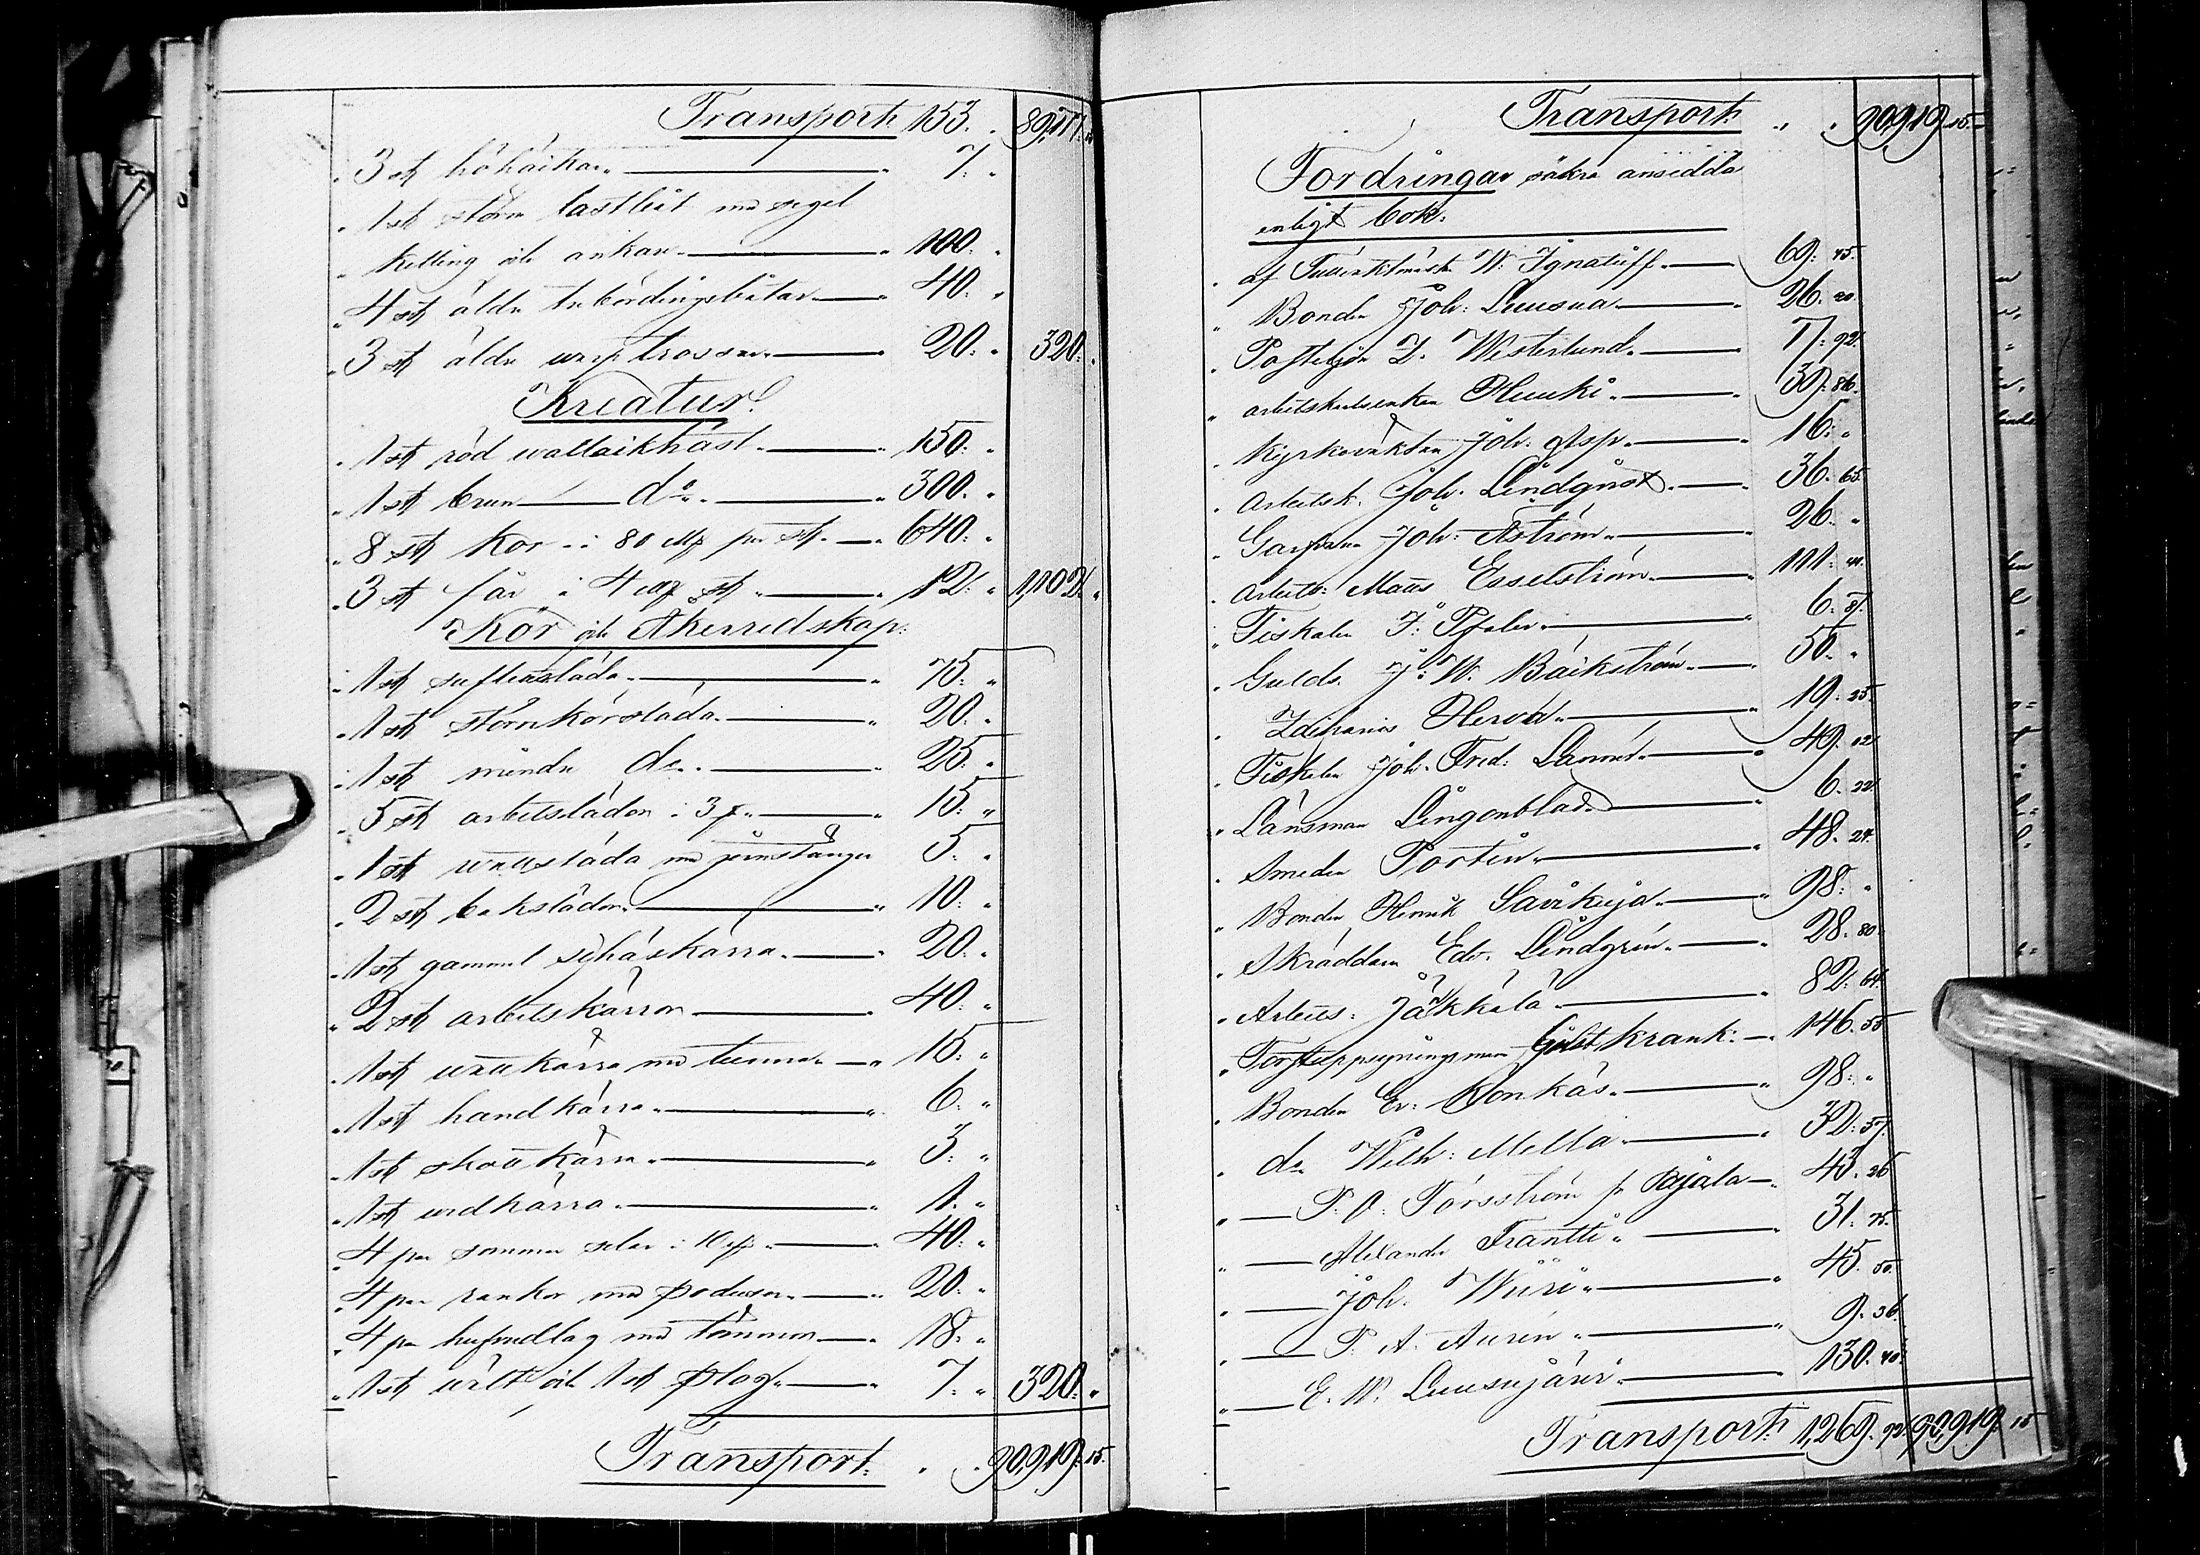 Transport 153. " 89,177.
" 3 st höhäckar " 7: "
" 1 st större lastbåt med segel
" ketting och ankare " 100: "
" 4 st äldre bördingsbåtar " 40: "
" 3 st äldre warptrossar " 20: " 320: "
Kreatur
" 1 st röd wallackhäst " 150: "
" 1 st brun do " 300. "
" 8 st kor i 80 mk per st " 640: "
" 3 st får i 4 mk st " 12: " 1,102. "
Kör och Åkerredskap:
" 1 st släda " 75: "
" 1 st större körsläda " 20. "
" 1 st mindre do " 25: "
" 5 st arbetslädor i 3 " 15: "
" 1 st släda med jernstänger 5: "
" 2 st bakslädor " 10: "
" 1 st gammal schäskärra " 20: "
" 2 st arbetskärror " 40: "
" 1 st wattukärra med tunna " 15: "
" 1 st handkärra " 6: "
" 1 st skottkärra " 3: "
" 1 st wedkärra " 1. "
" 4 par sommar selar i 10 " 40: "
" 4 par rankor med " 20: "
" 4 par med tömmar " 18: "
" 1 st wält och 1 st plog " 7: " 320: "
Transport: " 90,919: 15.
Transport: " " 90,919. 15.
Fordringar säkra ansedda
enligt bok:
" af W. Ignatieff " 69: 45.
" Bonden Joh: Luusua " 26. 20.
" Z. Westerlund " 17: 92.
" arbetskarlsenkan Huuki " 39: 86.
" Kyrkovaktaren Joh. Asp " 16: "
" Arbetsk. Joh. Lindqvist " 36. 65.
" Garfvaren Joh. Åström " 26. "
" Arbets: Matts Esselström " 111: 44.
" Fiskalen J. Pfaler " 6: 87.
" Gulds. J. W. Bäckström " 50. "
" Zacharias Herva " 19: 25.
" Fiskalen Joh. Fred. Lanner " 49. 02.
" Länsman Lingonblad " 6. 22.
" Smeden Portin " 48. 24.
" Bonden Henrik Savikuja " 98: "
" Skräddaren Edv. Lindgren " 28. 80.
" Arbets: Jääkkälä " 82: 64.
" Forstuppsyningsman Gust. Krank: " 146. 55
" Bonden Er: Konkäs " 98: "
" do Wilh: Mella " 32: 57.
" P. O. Forsström fr Pajala " 43. 26
" Alexander Frantti " 31: 75.
" Joh. Wiiri " 45. 50.
" P. A. Auren " 9. 36.
" E. W. Luusujärvi " 130. 40.
Transport: 1,269. 92. 90,919. 15